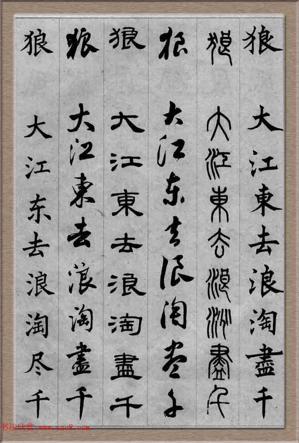 狼 大江東去浪淘盡千
狼 大江東去浪淘盡千
狼 大江东去浪淘尽千
狼 大江東去浪淘盡千
狼 大江東去浪淘盡千
狼 大江东去浪淘尽千